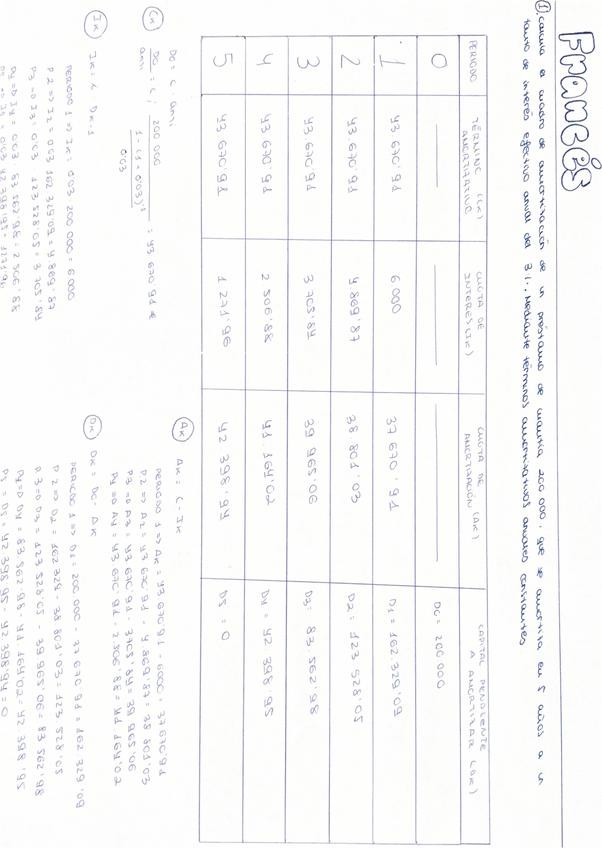 Francés
① Calcula el cuadro de amortización de un préstamo de cuantía 200 000, que se amortiza en 5 años a un
tanto de interés efectivo anual del 3%. Mediante términos amortizativos anuales constantes
PERIODO TÉRMINO (CK) AMORTIZATIVO CUOTA DE INTERÉS (IK) CUOTA DE AMORTIZACIÓN (AK) CAPITAL PENDIENTE A AMORTIZAR (DK)
0 D0 = 200 000
1 43 670'91 6 000 37 670'91 D1 = 162.329'09
2 43 670'91 4.869'87 38 801'03 D2 = 123 528'05
3 43 670'91 3 705'84 39 965'06 D3 = 83 562'98
4 43 670'91 2 506'88 41 164'02 D4 = 42 398'95
5 43 670'91 1 271'96 42 398'94 D5 = 0
D0 = C · ani
CK D0 = C ; 200 000 = 43 670'91 €
ani 1 - (1 + 0'03)⁻⁵
0'03
IK IK = i · DK-1
PERIODO 1 => IK = 0'03 · 200 000 = 6 000
P2 => I2 = 0'03 · 162 329'09 = 4 869'87
P3 => I3 = 0'03 · 123 528'05 = 3 705'84
P4 => I4 = 0'03 · 83 562'98 = 2 506'88
P5 => I5 = 0'03 · 42 398'95 = 1271'96
AK AK = C - IK
PERIODO 1 => AK = 43 670'91 - 6000 = 37 670'91
P2 => A2 = 43 670'91 - 4 869'87 = 38 801'03
P3 => A3 = 43 670'91 - 3705'84 = 39 965'06
P4 => A4 = 43 670'91 - 2.506'88 = 41 164'02
DK DK = D0 - AK
PERIODO 1 => D1 = 200 000 - 37 670'91 = 162 329'09
P2 => D2 = 162 329 - 38 801'03 = 123 528'05
P3 => D3 = 123 528'05 - 39 965'06 = 83 562'98
P4 => D4 = 83 562'98 - 41 164'02 = 42 398'95
P5 = D5 = 42 398'95 - 42 398'94 = 0